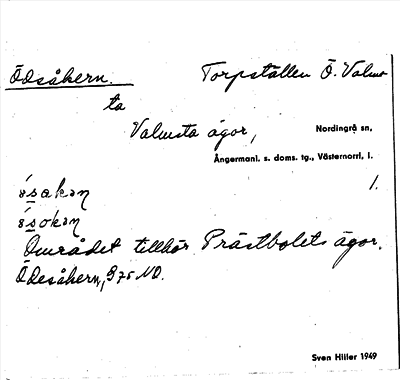 Ödsåkern. Torpställen Ö. Valms-
ta
Valmsta ägor,
Nordingrå sn,
Ångermanl. s. doms. tg., Västernorrl. l.
1.
Området tillhör Prästbolets ägor.
Ödesåkern, § 75 ND.
Sven Hiller 1949